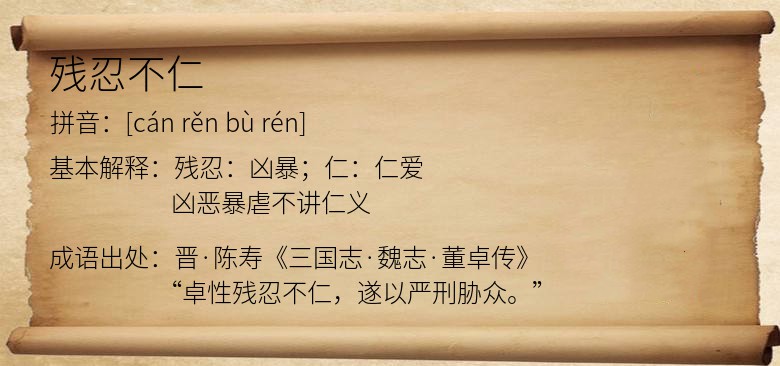 残忍不仁
拼音：[cán rěn bù rén]
基本解释：残忍：凶暴；仁：仁爱
凶恶暴虐不讲仁义
成语出处：晋·陈寿《三国志·魏志·董卓传》
“卓性残忍不仁，遂以严刑胁众。”